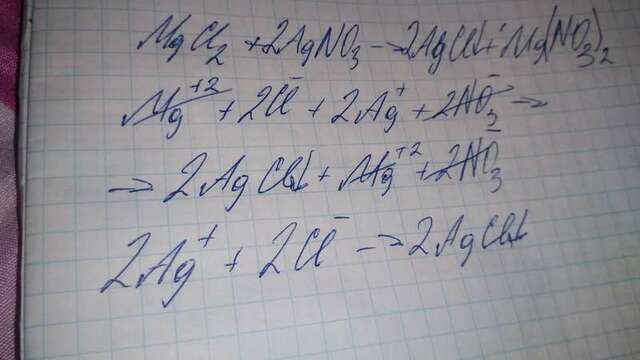 MgCl₂ + 2AgNO₃ → 2AgCl↓ + Mg(NO₃)₂
Mg⁺² + 2Cl⁻ + 2Ag⁺ + 2NO₃⁻ →
→ 2AgCl↓ + Mg⁺² + 2NO₃⁻
2Ag⁺ + 2Cl⁻ → 2AgCl↓